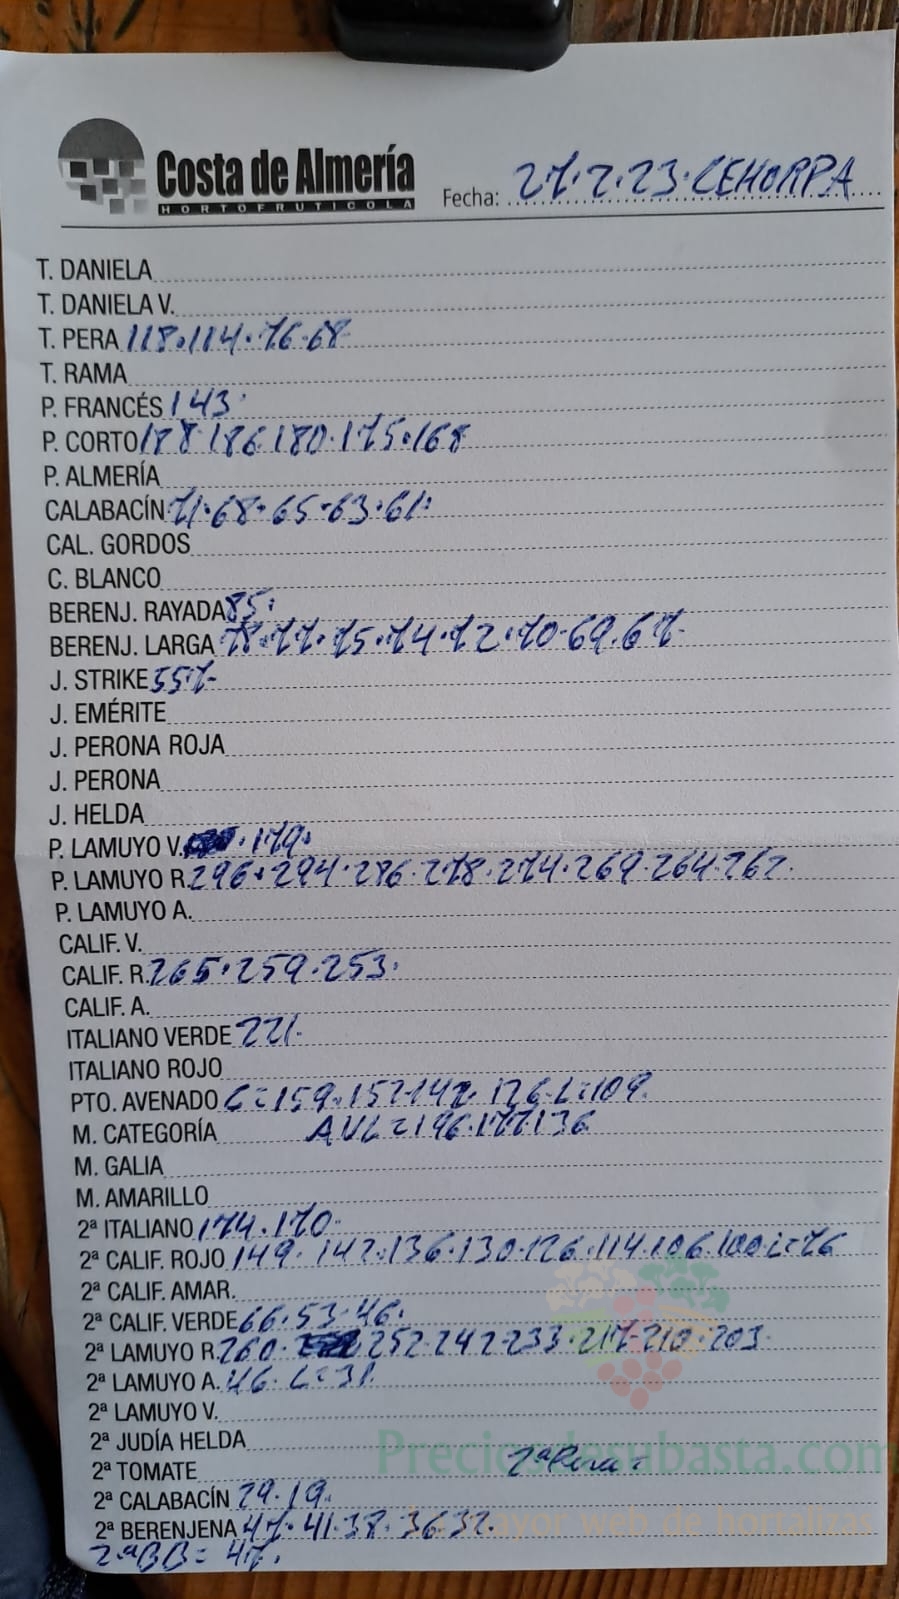 Costa de Almería
HORTOFRUTICOLA
Fecha: 27.2.23. CEHORPA
T. DANIELA
T. DANIELA V.
T. PERA 118.114.76.68
T. RAMA
P. FRANCÉS 143.
P. CORTO 188 186 180.175.168
P. ALMERÍA
CALABACÍN 71.68.65.63.61.
CAL. GORDOS
C. BLANCO
BERENJ. RAYADA 85.
BERENJ. LARGA 78.77.75.74.72.70.69.67-
J. STRIKE 557-
J. EMÉRITE
J. PERONA ROJA
J. PERONA
J. HELDA
P. LAMUYO V. .179.
P. LAMUYO R. 296.294.286.278.274.269.264.262.
P. LAMUYO A.
CALIF. V.
CALIF. R. 265.259.253.
CALIF. A.
ITALIANO VERDE 221.
ITALIANO ROJO
PTO. AVENADO C=159.152.142.126.L=109.
M. CATEGORÍA AVL=196.177.136
M. GALIA
M. AMARILLO
2ª ITALIANO 174.170.
2ª CALIF. ROJO 149.142.136.130.126.114.106.100.L=76
2ª CALIF. AMAR.
2ª CALIF. VERDE 66.53.46.
2ª LAMUYO R. 260. 252.242.233.217.210.203.
2ª LAMUYO A. 46. L=31.
2ª LAMUYO V.
2ª JUDÍA HELDA
Preciosdesubasta.com
2ª TOMATE 2ª Pera=
2ª CALABACÍN 29.19.
mayor web de hortalizas
2ª BERENJENA 47.41.38.36.32.
2.ªBB= 47.